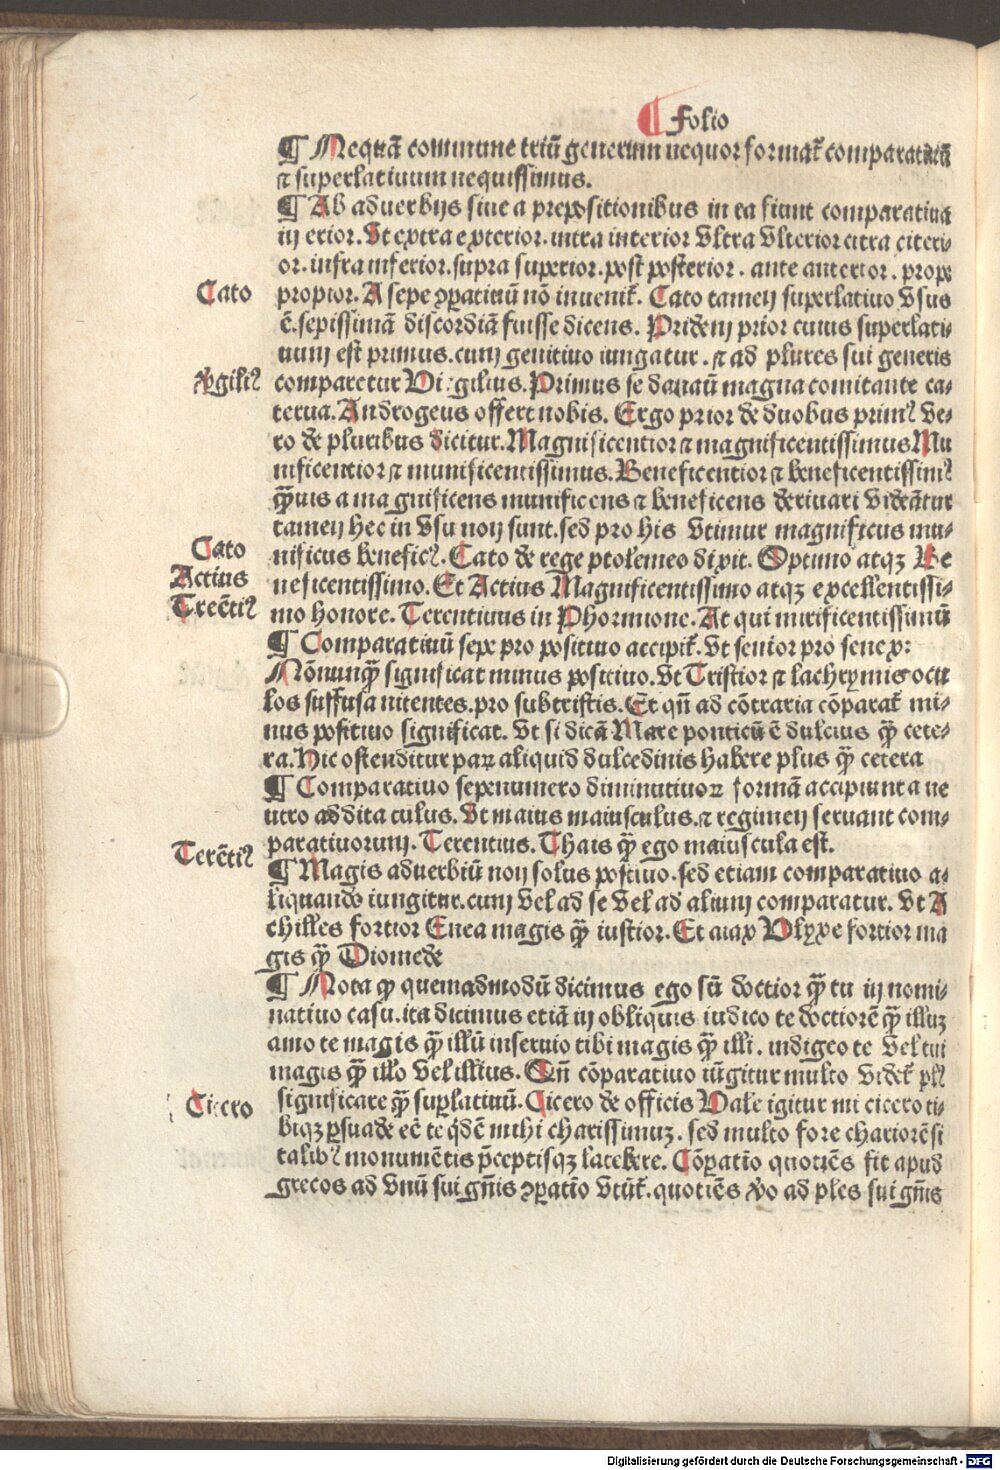 ¶ folio
¶ Nequā commune triū generum nequor format᷑ comparatiuū
⁊ superlatiuum nequissimus.
¶ Ab aduerbijs siue a prepositionibus in ea fiunt comparatiua
in erior. Vt extra exterior. intra interior Vltra Vlterior citra citeri⸗
or. infra inferior. supra superior. post posterior . ante anterior . prope
Cato
propior. A sepe ꝯparatiuū nō inuenit᷑. Cato tamen superlatiuo Vsus
ē. sepissimā discordiā fuisse dicens. Pridem prior cuius superlati⸗
uum est primus. cum genitiuo iungatur . ⁊ ad plures sui generis
Virgiliꝰ
comparetur Virgilius. Primus se danaū magna comitante ca⸗
terua. Androgeus offert nobis. Ergo prior de duobus primꝰ Ve⸗
ro de pluribus dicitur. Magnificentior ⁊ magnificentissimus Mu
nificentior ⁊ munificentissimus. Beneficentior ⁊ beneficentissimꝰ
q̄uis a magnificens munificens ⁊ beneficens deriuari Videātur
tamen hec in Vsu non sunt. sed pro his Vtimur magnificus mu⸗
Cato
nificus beneficꝰ. Cato de rege ptolemeo dixit. Optimo atqꝫ Be
Actius
neficentissimo. Et Actius Magnificentissimo atqꝫ excellentissi⸗
Treētiꝰ
mo honore. Terentiuus in Phormione. At qui mirificentissimū
¶ Comparatiuū sepe pro positiuo accipit᷑. Vt senior pro senex:
Nōnunq̄ significat minus positiuo. Vt Tristior ⁊ lachrymis ocu
los suffusa nitentes. pro subtristis. Et qn̄ ad cōtraria cōparat᷑ mi⸗
nus positiuo significat. Vt si dicā Mare ponticū ē dulcius q̄ cete⸗
ra. Hic ostenditur paꝝ aliquid dulcedinis habere plus q̄ cetera
¶ Comparatiuo sepenumero diminutiuoꝝ formā accipiunt a ne
utro addita culus. Vt maius maiusculus. ⁊ regimen seruant com⸗
Terētiꝰ
paratiuorum. Terentius. Thais q̄ ego maiuscula est.
¶ Magis aduerbiū non solus positiuo. sed etiam comparatiuo a⸗
liquando iungitur. cum Vel ad se Vel ad alium comparatur. Vt A
chilles fortior Enea magis q̄ iustior. Et aiax Vlyxe fortior ma
gis q̄ Diomede
¶ Nota ꝙ quemadmodū dicimus ego sū doctior q̄ tu in nomi⸗
natiuo casu. ita dicimus etiā in obliquis iudico te doctiorē q̄ illuꝫ
amo te magis q̄ illū inseruio tibi magis q̄ illi. indigeo te Vel tui
magis q̄ illo Vel illius. Qn̄ cōparatiuo iūgitur multo Videt᷑ plꝰ
Cicero
significare q̄ suplatiuū. Cicero de officis Vale igitur mi cicero ti⸗
biqꝫ ꝑsuade eē te q̄dē mihi charissimuꝫ. sed multo fore chariorē si
talibꝰ monumētis p̄ceptisqꝫ latebere. Cōpatīo quotiēs fit apud
grecos ad Vnū sui gn̄is ꝯpatīo Vtūt᷑. quotiēs Vo ad ples sui gn̄is
Digitalisierung gefördert durch die Deutsche Forschungsgemeinschaft - DFG